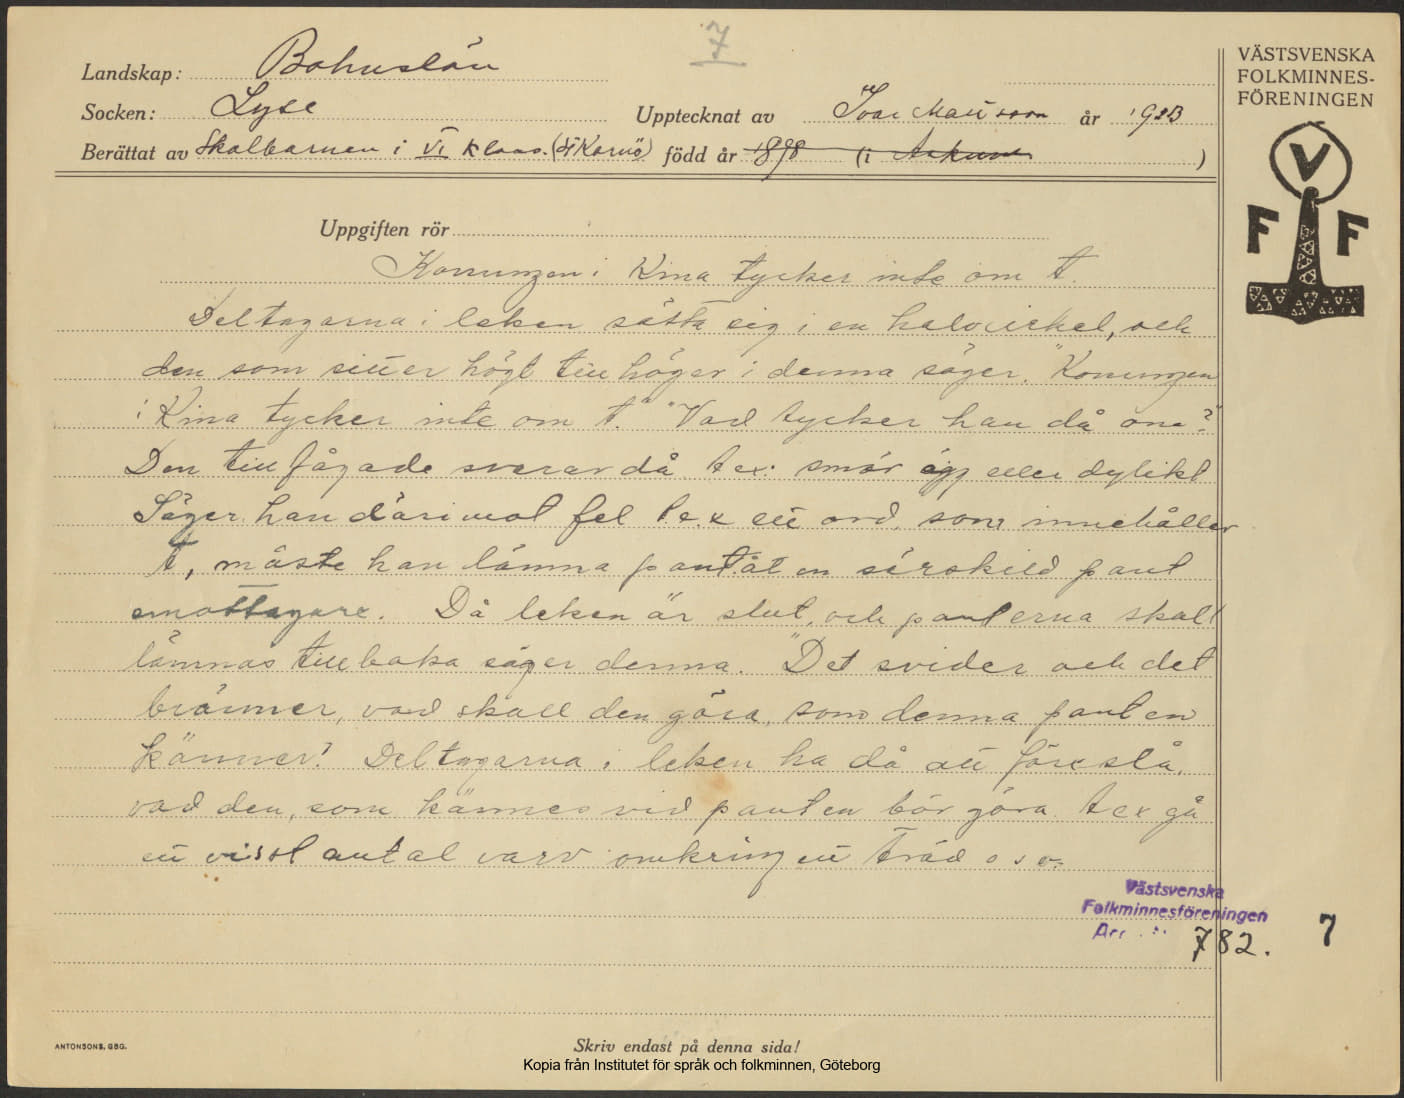 7
Landskap: Bohuslän
Socken: Lyse
Upptecknat av Ivar Mattsson år 1923
Berättat av Skolbarnen i VI klass. född år 1898 (i )
VÄSTSVENSKA
FOLKMINNES-
FÖRENINGEN
V
F F
Uppgiften rör
Konungen i Kina tycker inte om t.
Deltagarna i leken sätta sig i en halvcirkel, och
den som sitter högt till höger i denna säger. "Konungen
i Kina tycker inte om t." "Vad tycker han då om?"
Den tillfågade svarar då t ex: smör ägg eller dylikt
Säger han däremot fel t e.x ett ord, som innehåller
t, måste han lämna pant åt en särskild pant
emottagare. Då leken är slut, och panterna skall
lämnas tillbaka säger denna. "Det svider och det
bränner, vad skall den göra, som denna panten
känner? Deltagarna i leken ha då att föreslå,
vad den, som kännes vid panten bör göra t ex gå
ett visst antal varv omkring ett träd o s v.
Västsvenska
Folkminnesföreningen
782.
7
ANTONSONS, GBG.
Skriv endast på denna sida!
Kopia från Institutet för språk och folkminnen, Göteborg